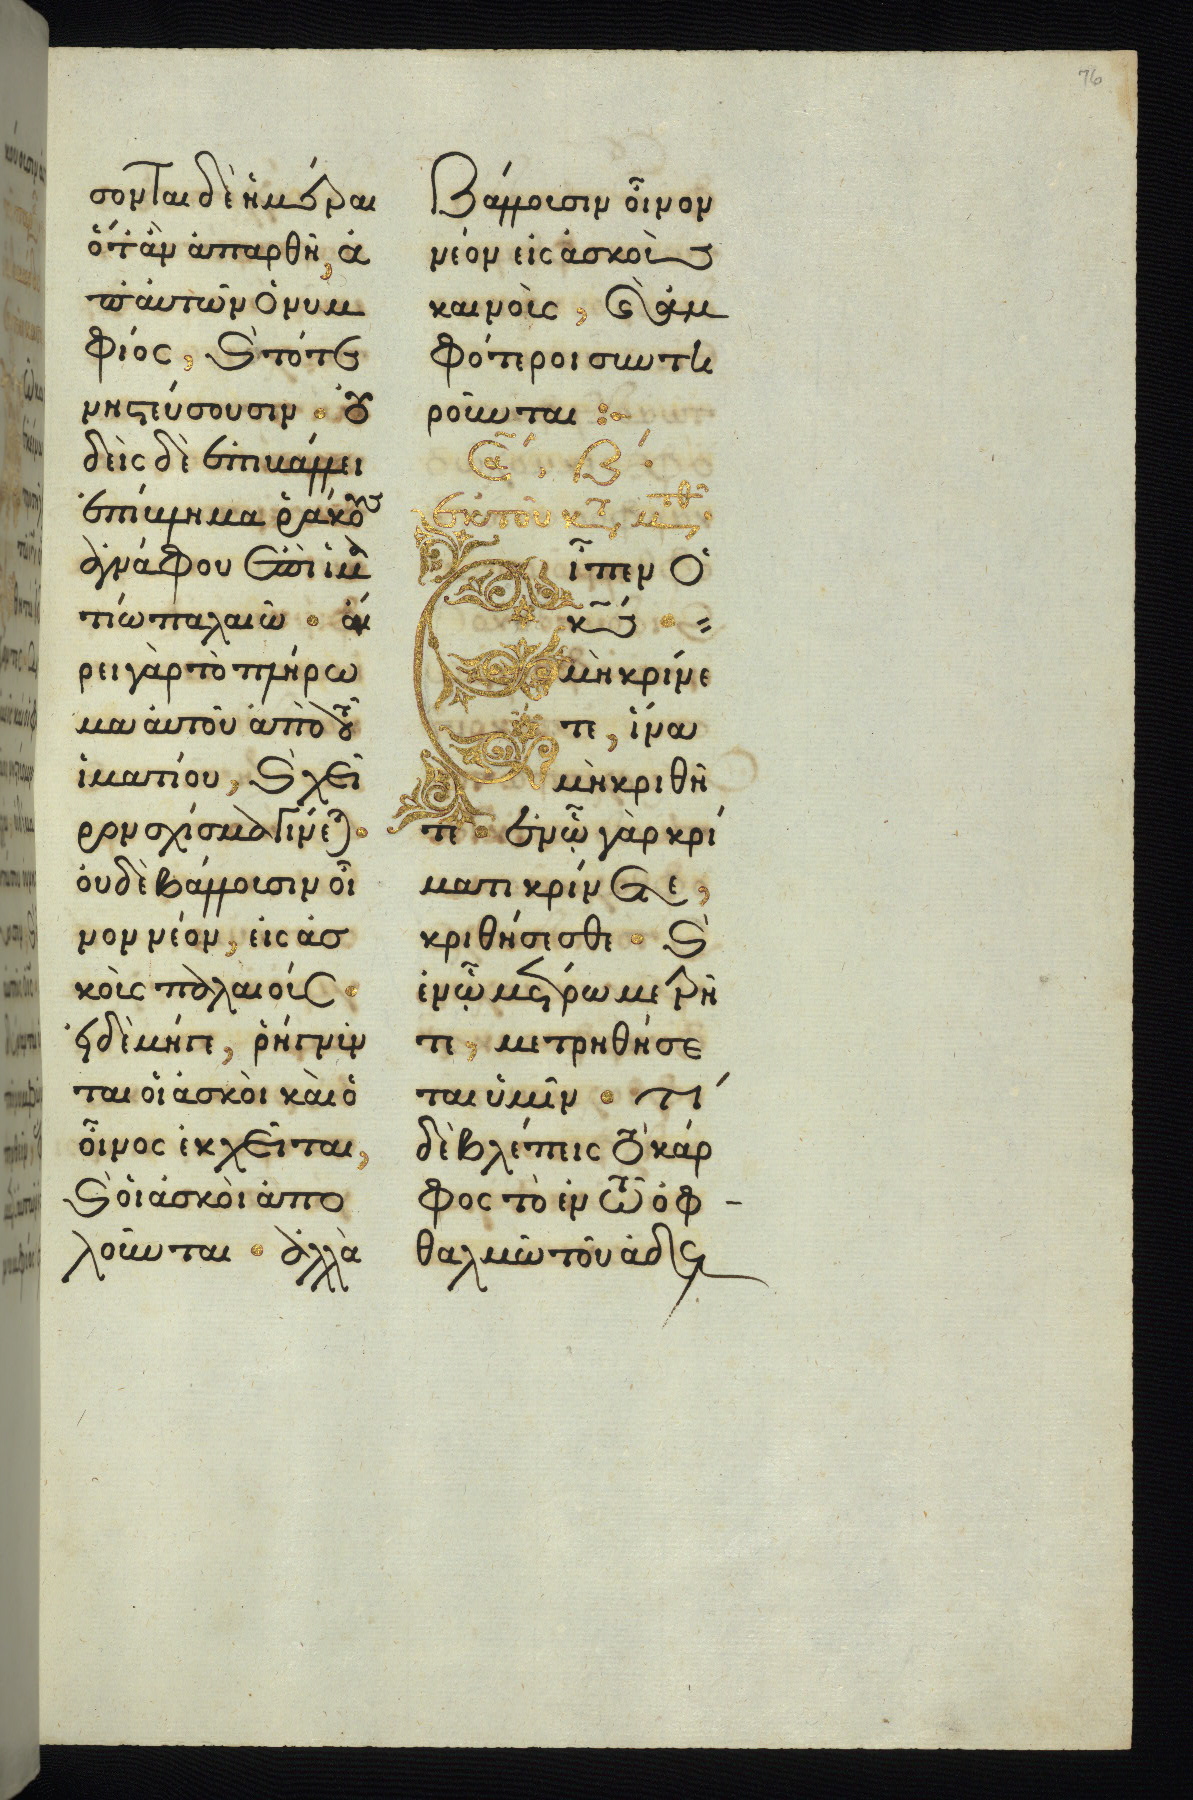 76
σονται δὲ ἡμέραι
ὅταν ἀπαρθῆ, ἀ
π' ἀυτῶν ὁ νυμ
φίος, καὶ τότε
νηστεύσουσιν · οὐ
δεὶς δὲ ἐπιβάλλει
ἐπίβλημα ῥάκους
ἀγνάφου ἐπὶ ἱμα
τίω παλαιῶ · αἴ
ρει γὰρ τὸ πλήρω
μα ἀυτοῦ ἀπὸ τοῦ
ἱματίου, καὶ χεῖ
ρον σχίσμα γίνεται ·
ὀυδὲ βάλλουσιν οἶ
νον νέον, εἰς ἀσ
κοὶς παλαιοίς ·
εἰ δὲ μήγε, ῥήγνυν
ται οἱ ἀσκοὶ καὶ ὁ
οἶνος ἐκχεῖται,
καὶ οἱ ἀσκοὶ ἀπο
λοῦνται · ἀλλὰ
βάλλουσιν οἶνον
νέον εἰς ἀσκοὺς
καινοὺς, καὶ ἀμ
φότεροι συντη
ροῦνται :·
Σα, Β ·
ἐκ τοῦ κτ μτθ
Εἶπεν ὁ
κς ·
μὴ κρίνε
τε, ἵνα
μὴ κριθῆ
τε · ἐν ᾧ γὰρ κρί
ματι κρίνετε,
κριθήσεσθε · καὶ
ἐν ᾧ μέτρω μετρῆ
τε, μετρηθήσε
ται ὑμῖν · τί
δὲ βλέπεις τὸ κάρ
φος τὸ ἐν τῶ ὀφ-
θαλμῶ τοῦ ἀδελ